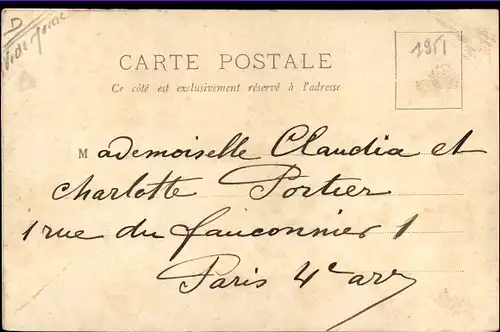 D
1951
CARTE POSTALE
Ce côté est exclusivement réservé à l'adresse
Mademoiselle Claudia et
Charlotte Portier
1 rue du fauconnier 1
Paris 4e arr